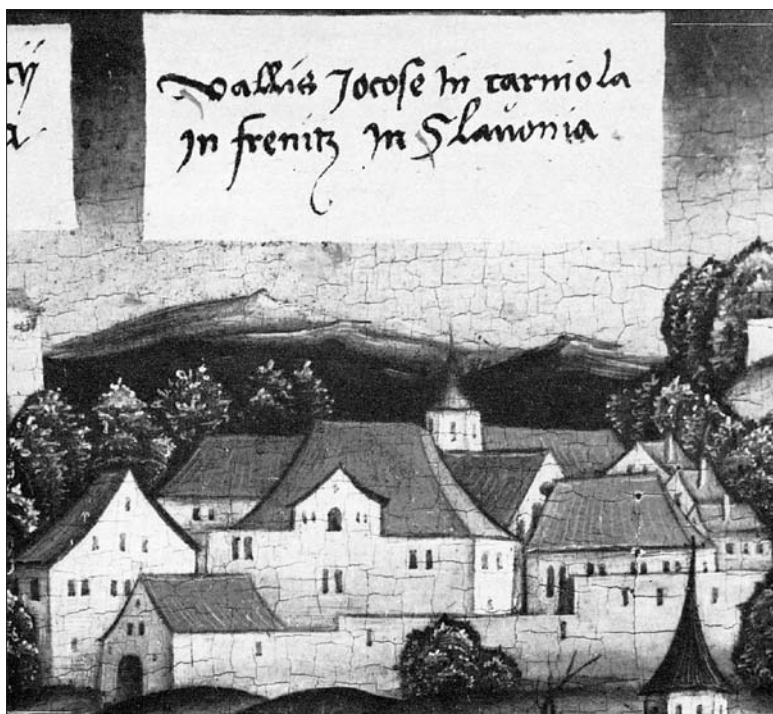 tij
a
Vallis Jocose in carniola
in frenitz in Sclauonia